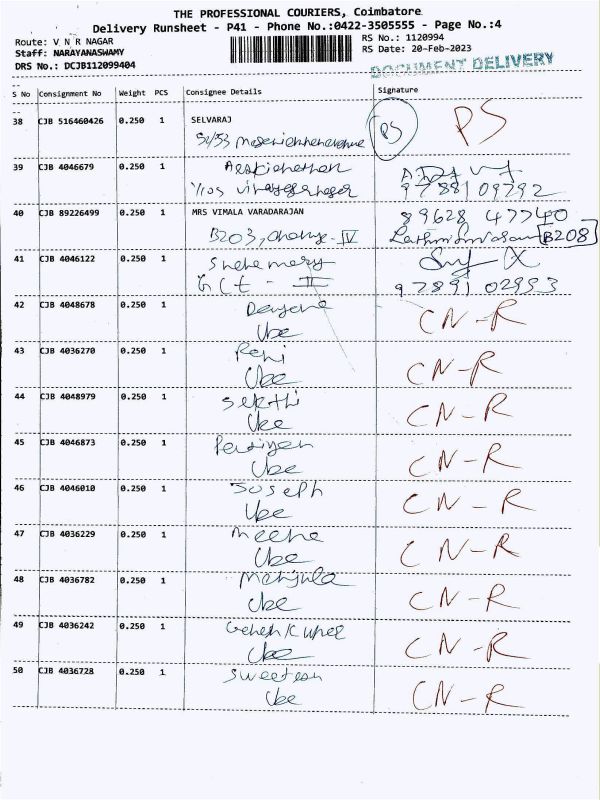 THE PROFESSIONAL COURIERS, Coimbatore
Delivery Runsheet - P41 - Phone No.:0422-3505555 - Page No.:4
Route: V N R NAGAR
Staff: NARAYANASWAMY
DRS No.: DCJB112099404
RS No.: 1120994
RS Date: 20-Feb-2023
DOCUMENT DELIVERY
S No Consignment No Weight PCS Consignee Details Signature
38 CJB 516460426 0.250 1 SELVARAJ
PS PS
39 CJB 4046679 0.250 1
97881 09292
40 CJB 89226499 0.250 1 MRS VIMALA VARADARAJAN 89628 47740
B203, IV B208
41 CJB 4046122 0.250 1 Snehamary
GCT - II 97891 02953
42 CJB 4048678 0.250 1 CN-R
Ube
43 CJB 4036270 0.250 1 CN-R
Ube
44 CJB 4048979 0.250 1 Sekthi CN-R
Ube
45 CJB 4046873 0.250 1 CN-R
Ube
46 CJB 4046010 0.250 1 Joseph CN-R
Ube
47 CJB 4036229 0.250 1 Meena CN-R
Ube
48 CJB 4036782 0.250 1 Manjula CN-R
Ube
49 CJB 4036242 0.250 1 CN-R
Ube
50 CJB 4036728 0.250 1 CN-R
Ube